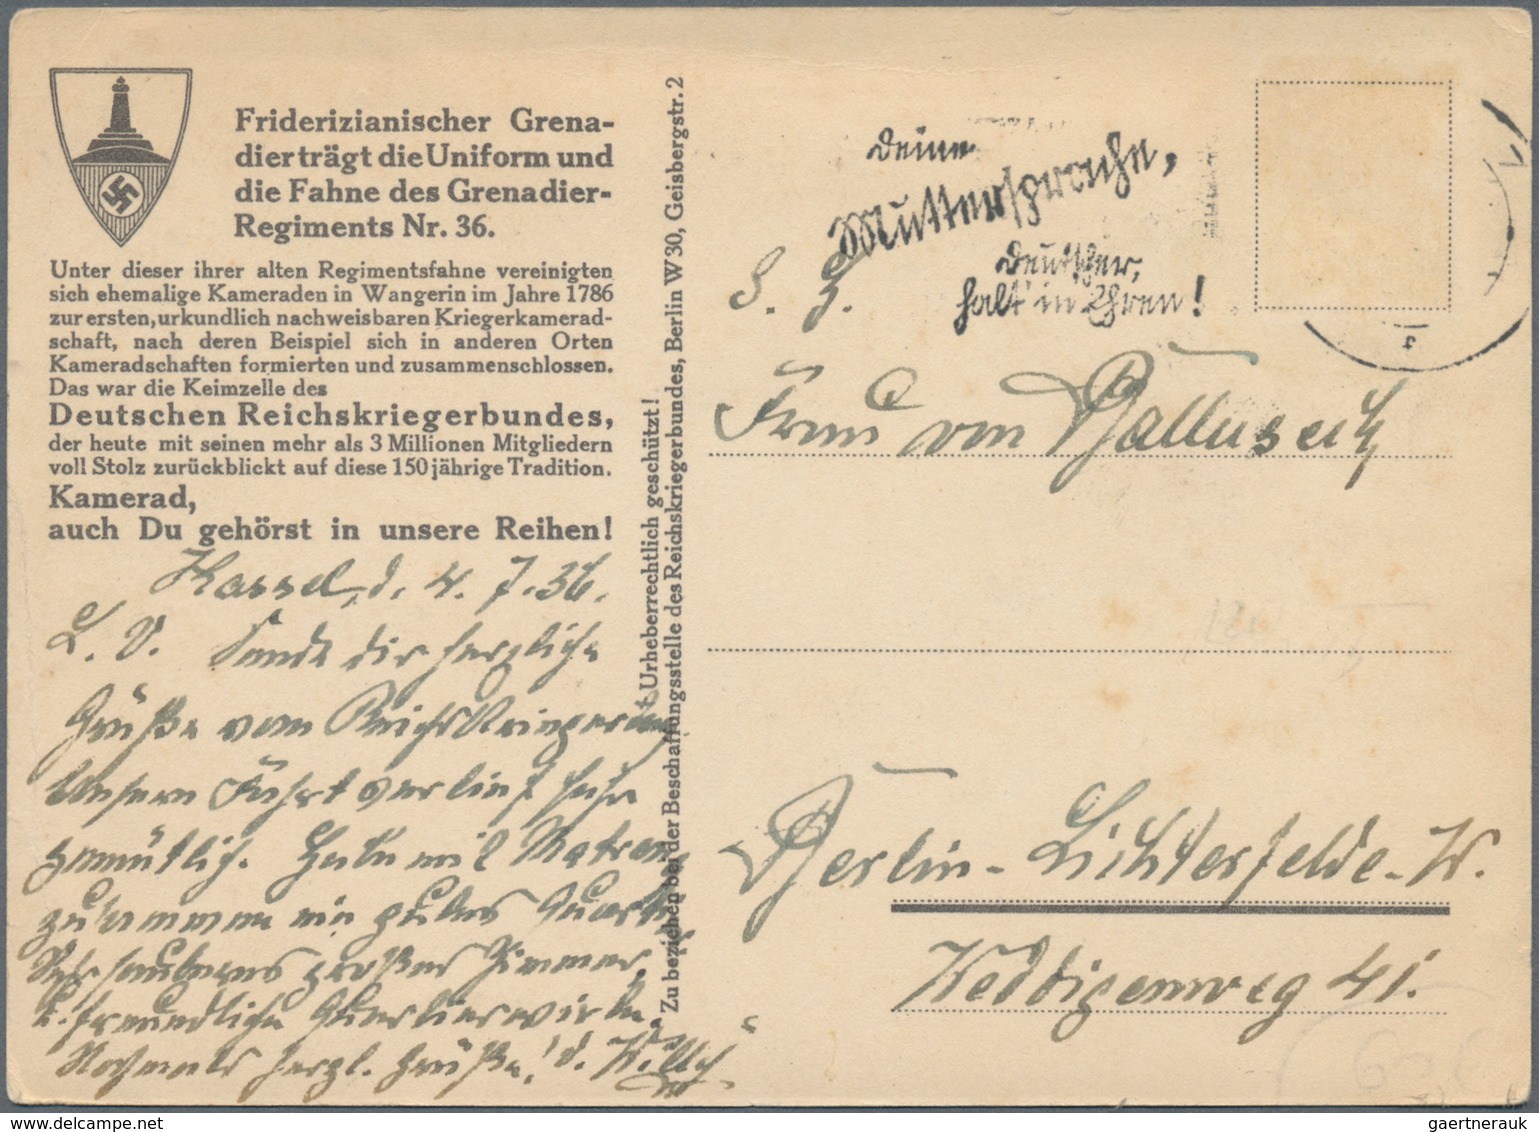 Friderizianischer Grena-
dier trägt die Uniform und
die Fahne des Grenadier-
Regiments Nr. 36.
Unter dieser ihrer alten Regimentsfahne vereinigten
sich ehemalige Kameraden in Wangerin im Jahre 1786
zur ersten, urkundlich nachweisbaren Kriegerkamerad-
schaft, nach deren Beispiel sich in anderen Orten
Kameradschaften formierten und zusammenschlossen.
Das war die Keimzelle des
Deutschen Reichskriegerbundes,
der heute mit seinen mehr als 3 Millionen Mitgliedern
voll Stolz zurückblickt auf diese 150jährige Tradition.
Kamerad,
auch Du gehörst in unsere Reihen!
Kassel, d. 4. 7. 36.
L. V. Sende dir herzliche
Grüße vom Reichskriegertag
Unsere Fahrt verlief sehr
gemütlich. Habe mit
zusammen ein gutes Quartier
Sehr sauberes großes Zimmer,
u. freundliche Quartierwirte.
Nochmals herzl. Grüße! d. Willy
Urheberrechtlich geschützt!
Zu beziehen bei der Beschaffungsstelle des Reichskriegerbundes, Berlin W 30, Geisbergstr. 2
Deine
Muttersprache,
Deutscher,
halt' in Ehren!
S. H.
Frau von Balluseck
Berlin-Lichterfelde-W.
Weddigenweg 41.
gaertnerauk